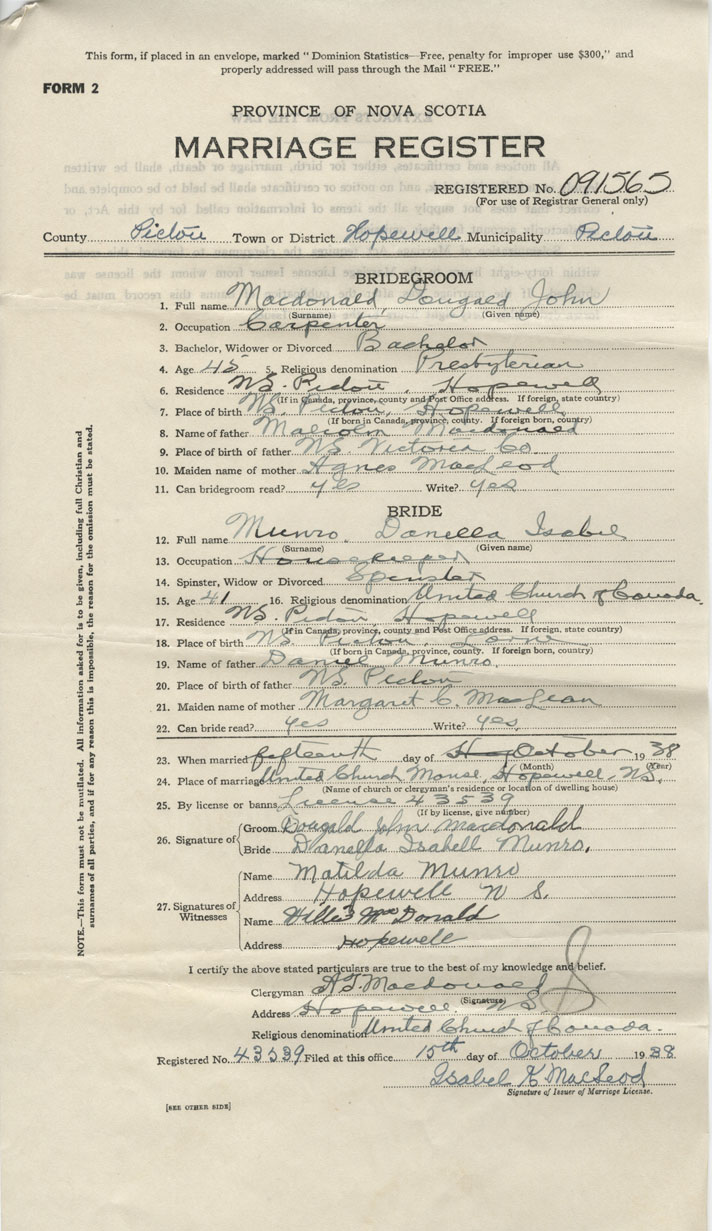 This form, if placed in an envelope, marked "Dominion Statistics—Free, penalty for improper use $300," and
properly addressed will pass through the Mail "FREE."
FORM 2
PROVINCE OF NOVA SCOTIA
MARRIAGE REGISTER
REGISTERED No. 091565
(For use of Registrar General only)
County Pictou Town or District Hopewell Municipality Pictou
BRIDEGROOM
1. Full name Macdonald, Dougald John
(Surname) (Given name)
2. Occupation Carpenter
3. Bachelor, Widower or Divorced Bachelor
4. Age 45 5. Religious denomination Presbyterian
6. Residence NS. Pictou, Hopewell
(If in Canada, province, county and Post Office address. If foreign, state country)
7. Place of birth NS. Pictou, Hopewell
(If born in Canada, province, county. If foreign born, country)
8. Name of father Malcolm Macdonald
9. Place of birth of father NS Victoria Co.
10. Maiden name of mother Agnes MacLeod
11. Can bridegroom read? yes Write? yes
BRIDE
12. Full name Munro, Danella Isabel
(Surname) (Given name)
13. Occupation Housekeeper
14. Spinster, Widow or Divorced Spinster
15. Age 41 16. Religious denomination United Church of Canada.
17. Residence NS. Pictou, Hopewell
(If in Canada, province, county and Post Office address. If foreign, state country)
18. Place of birth NS Pictou, Lorne
(If born in Canada, province, county. If foreign born, country)
19. Name of father Daniel Munro,
20. Place of birth of father NS Pictou
21. Maiden name of mother Margaret C. MacLean
22. Can bride read? yes Write? yes,
23. When married fifteenth day of October 1938
(Month) (Year)
24. Place of marriage United Church Manse, Hopewell, NS,
(Name of church or clergyman's residence or location of dwelling house)
25. By license or banns License 43539
(If by license, give number)
26. Signature of Groom Dougald John Macdonald
Bride Danella Isabell Munro,
27. Signatures of Witnesses
Name Matilda Munro
Address Hopewell N S.
Name Willis McDonald
Address Hopewell
I certify the above stated particulars are true to the best of my knowledge and belief.
Clergyman A.T. Macdonald
(Signature)
Address Hopewell NS
Religious denomination United Church of Canada.
Registered No. 43539 Filed at this office 15th day of October 1938
Isabel K MacLeod
Signature of Issuer of Marriage License.
[SEE OTHER SIDE]
NOTE.—This form must not be mutilated. All information asked for is to be given, including full Christian and
surnames of all parties, and if for any reason this is impossible, the reason for the omission must be stated.